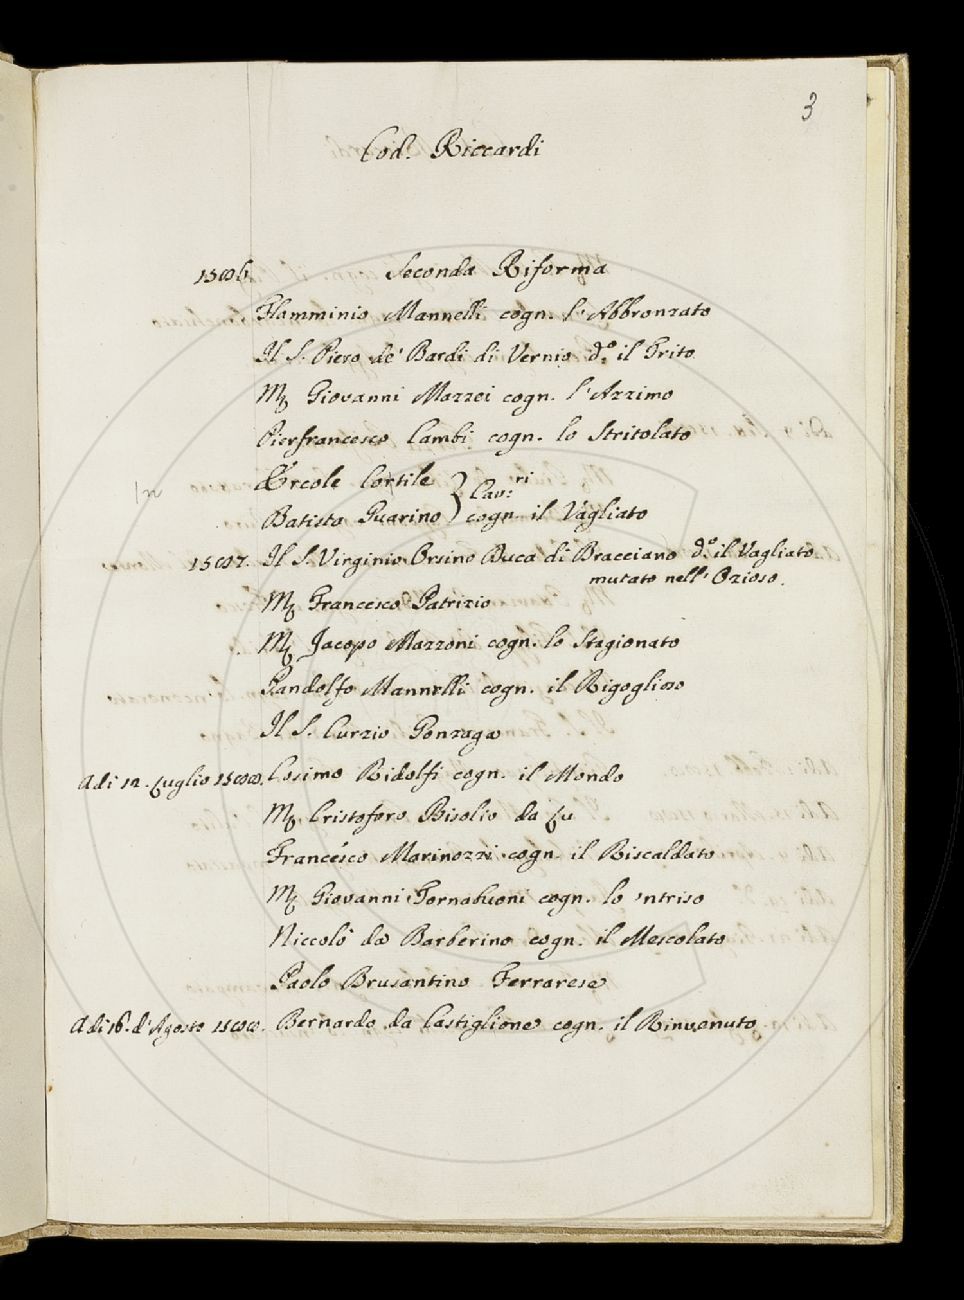 3
Cod. Riccardi
1586 Seconda Riforma
Flamminio Mannelli cogn. l'Abbronzato
Il S. Piero de' Bardi di Vernio d.º il Trito
Mſ Giovanni Mazzei cogn. l'Azzimo
Pierfrancesco Cambi cogn. lo Stritolato
Ercole Cortile } Cav:ri
Batista Guarino } cogn. il Vagliato
1587. Il S. Virginio Orsino Duca di Bracciano d.º il Vagliato
mutato nell' Ozioso.
Mſ Francesco Patrizio
Mſ Jacopo Mazzoni cogn. lo Stagionato
Pandolfo Mannelli cogn. il Rigoglioso
Il S. Curzio Gonzaga
Adi 12. Luglio 1588. Cosimo Ridolfi cogn. il Mondo
Mſ Cristoforo Bisolio da Lu
Francesco Marinozzi cogn. il Riscaldato
Mſ Giovanni Tornabuoni cogn. lo 'ntriso
Niccolò da Barberino cogn. il Mescolato
Paolo Brusantino Ferrarese
Adi 16. d'Agosto 1588. Bernardo da Castiglione cogn. il Rinvenuto